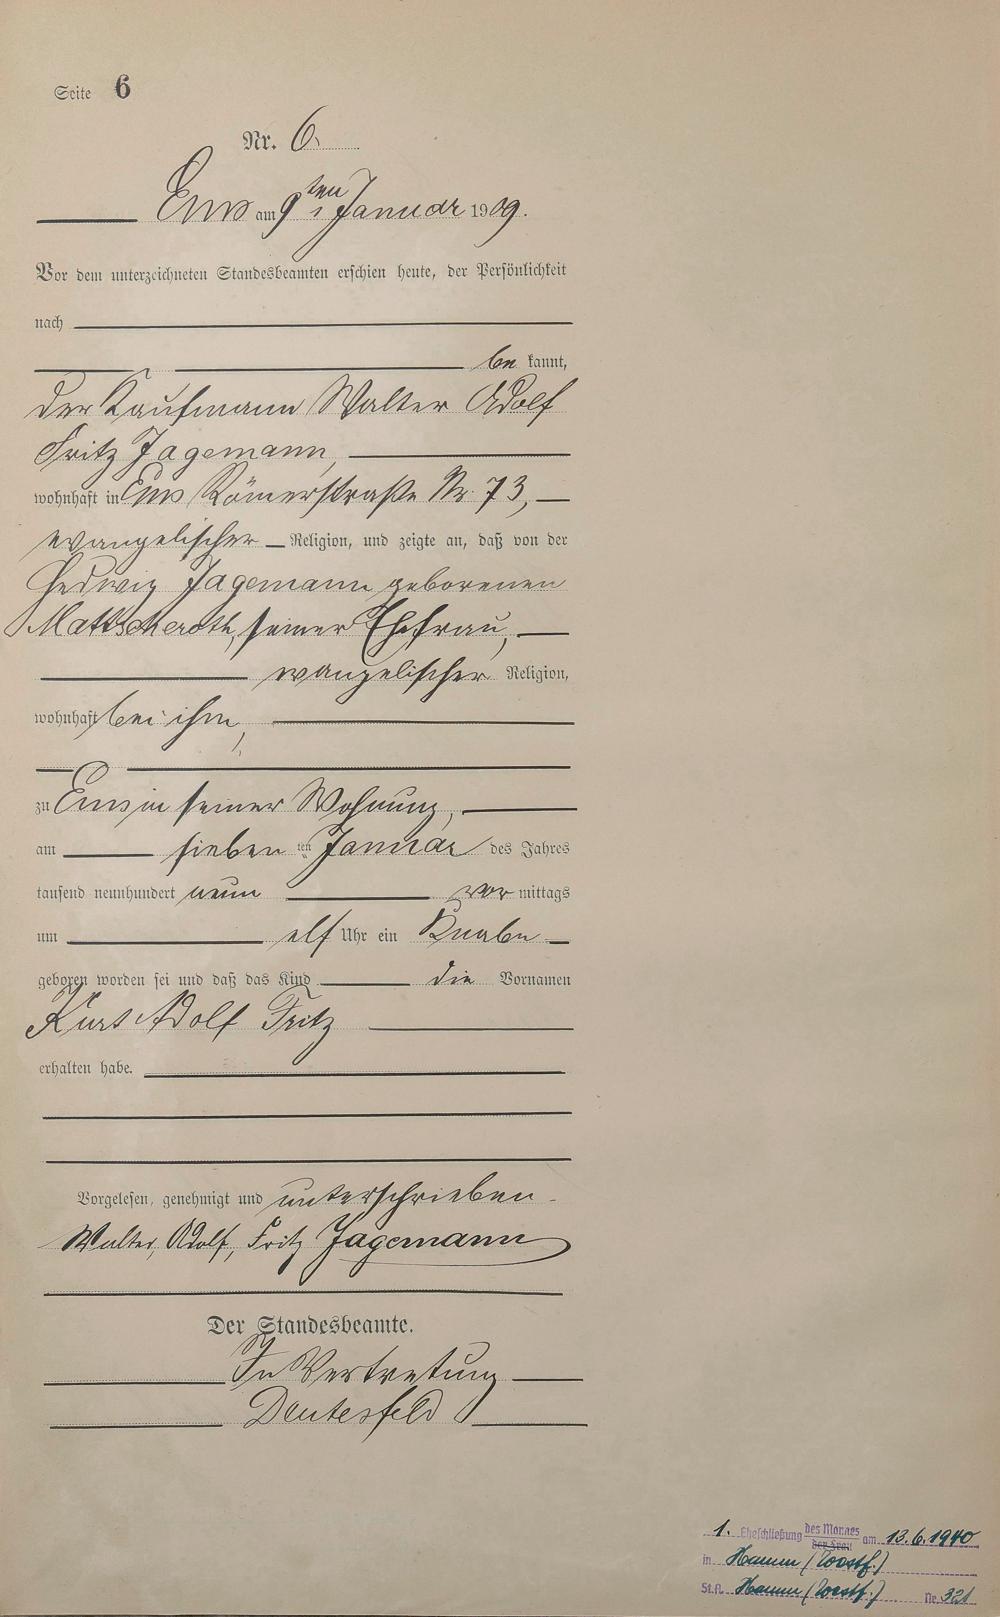 Seite 6
Nr. 6.
Ems am 9ten Januar 1909.
Vor dem unterzeichneten Standesbeamten erschien heute, der Persönlichkeit
nach
be kannt,
der Kaufmann Walter Adolf
Fritz Jagemann,
wohnhaft in Ems Römerstraße Nr. 73,
evangelischer Religion, und zeigte an, daß von der
Hedwig Jagemann geborenen
seiner Ehefrau,
evangelischer Religion,
wohnhaft bei ihm,
zu Ems in seiner Wohnung,
am sieben ten Januar des Jahres
tausend neunhundert neun vor mittags
um elf Uhr ein Knabe
geboren worden sei und daß das Kind die Vornamen
Kurt Adolf Fritz
erhalten habe.
Vorgelesen, genehmigt und unterschrieben.
Walter, Adolf, Fritz Jagemann
Der Standesbeamte.
In Vertretung
Deutesfeld
1. Eheschließung des Mannes der Frau am 13.6.1940
in Hamm (Westf.)
St.A. Hamm (Westf.) Nr. 321